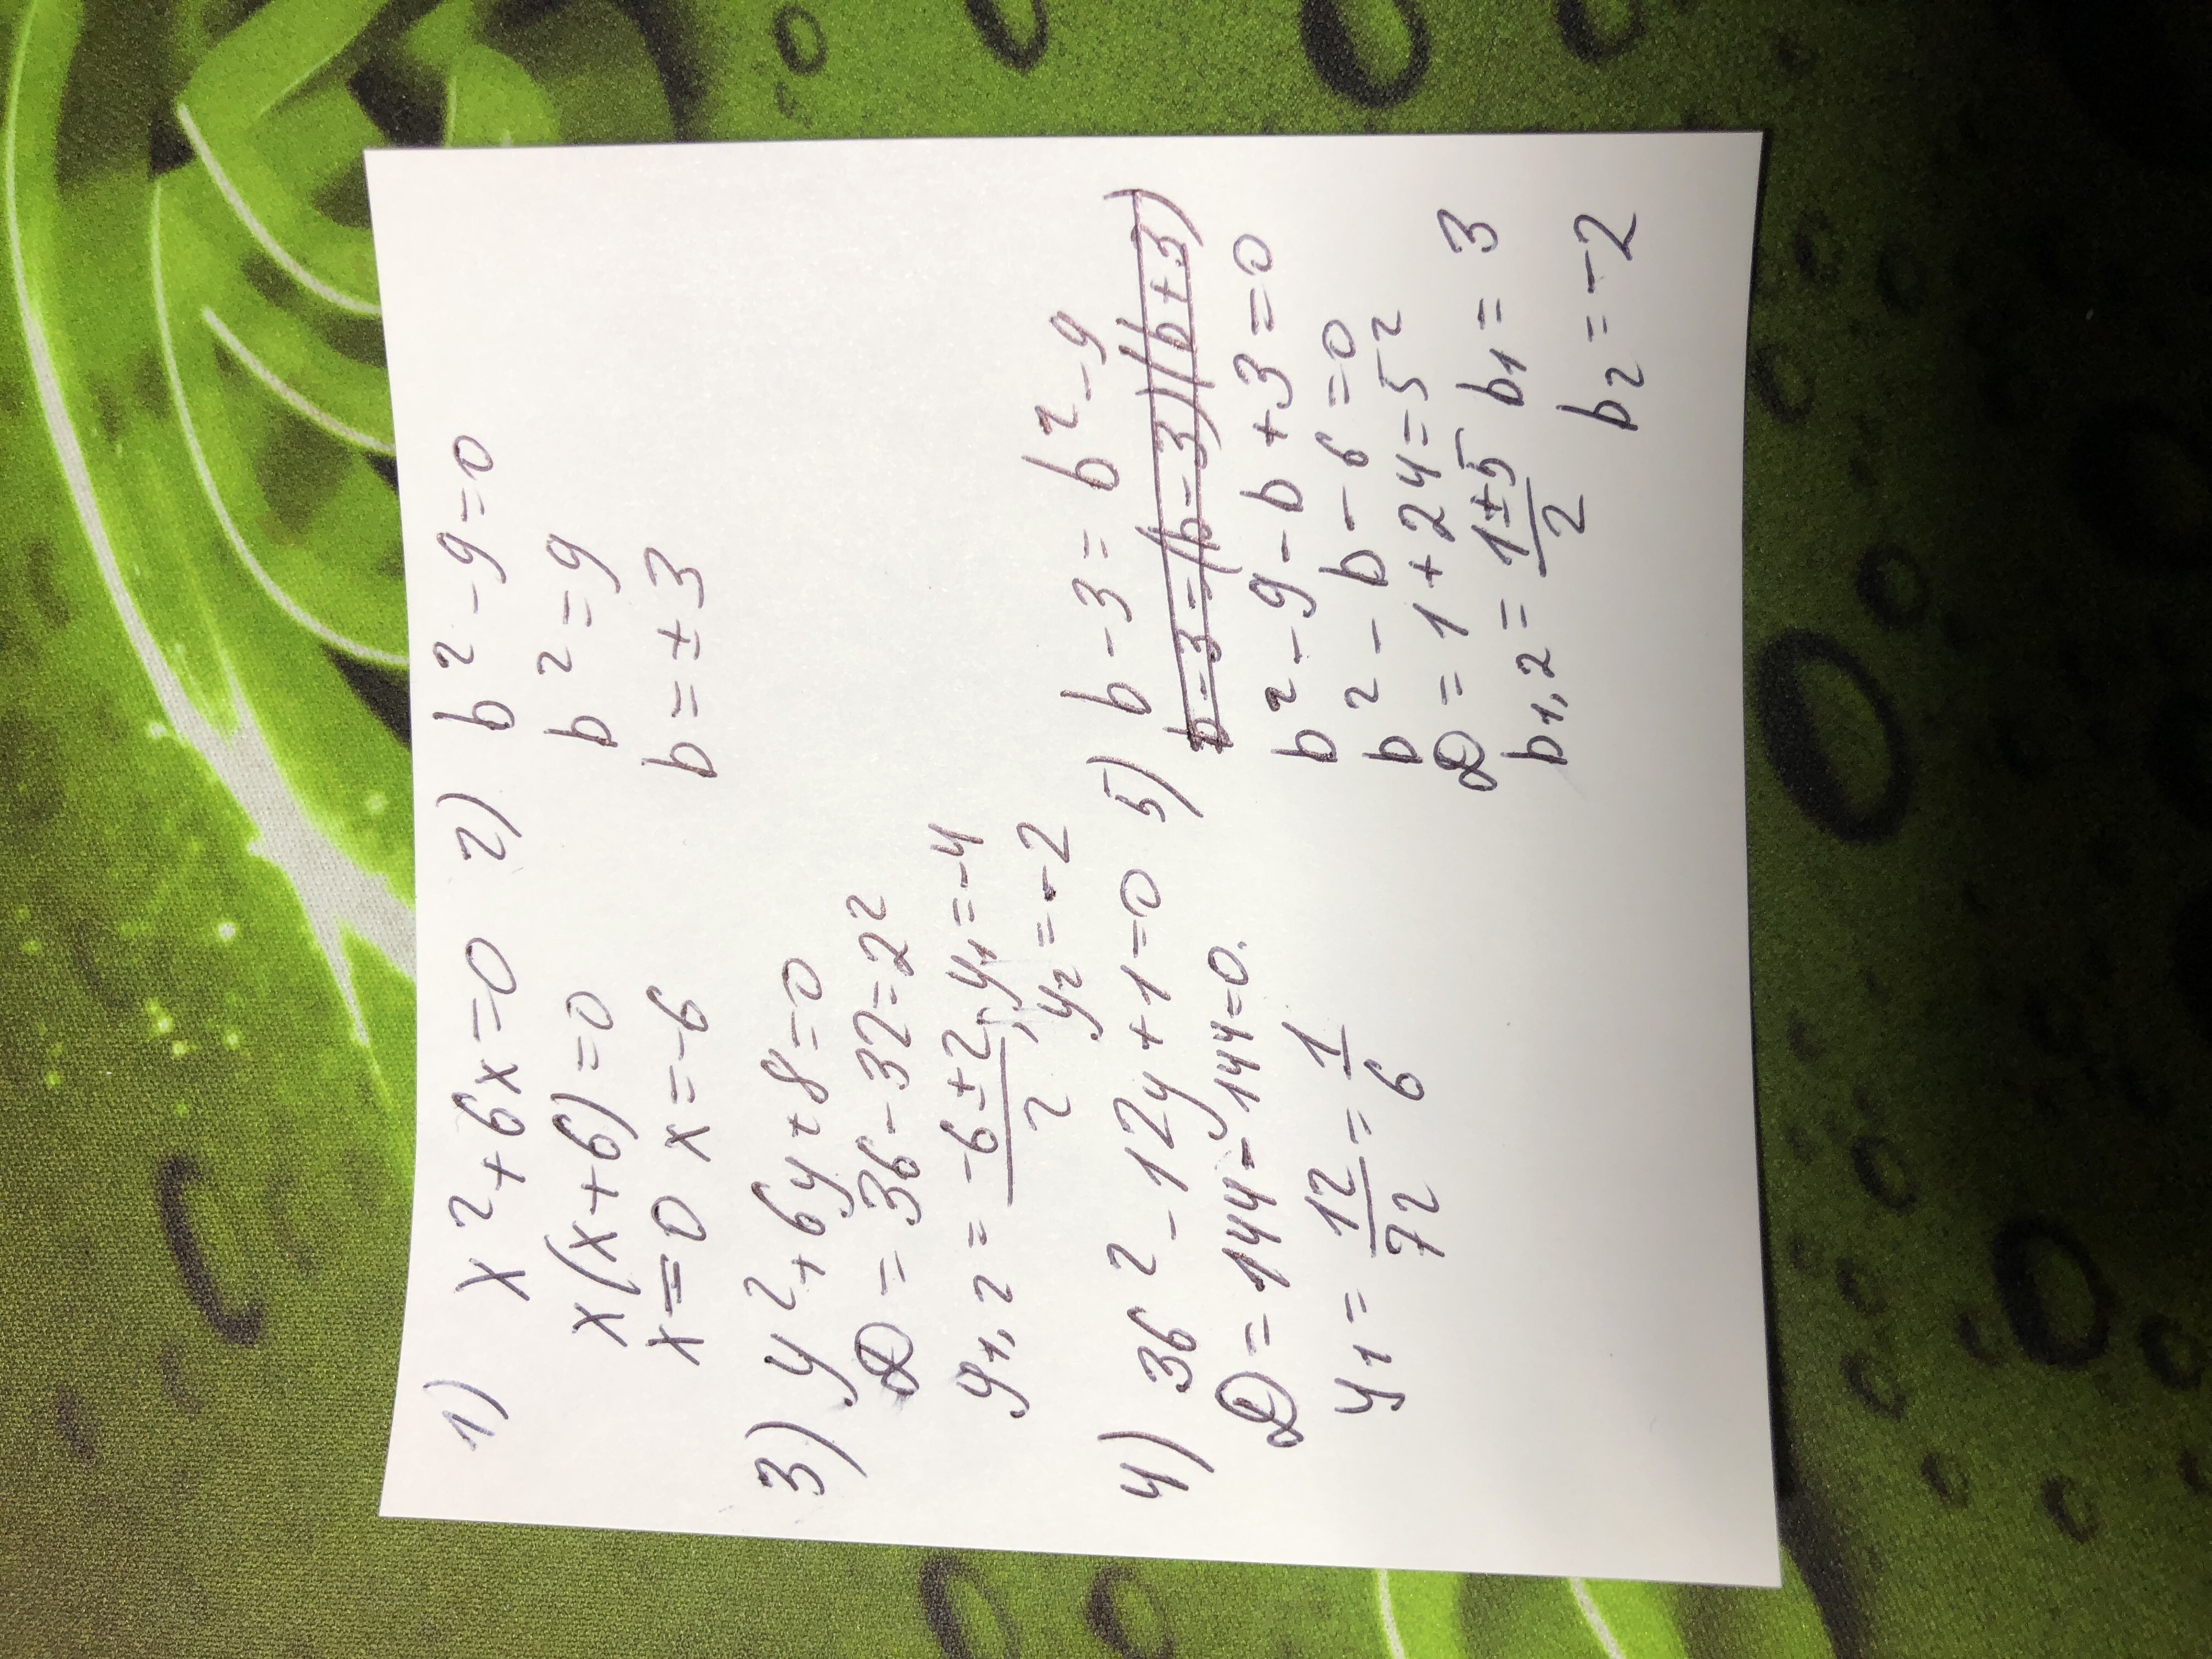 1) x² + 6x = 0
x(x+6) = 0
x = 0 x = -6
2) b² - 9 = 0
b² = 9
b = ±3
3) y² + 6y + 8 = 0
D = 36 - 32 = 2²
y1,2 = (-6 ± 2)/2; y1 = -4
y2 = -2
4) 36² - 12y + 1 = 0
D = 144 - 144 = 0.
y1 = 12/72 = 1/6
5) b - 3 = b² - 9
b - 3 = (b - 3)(b + 3)
b² - 9 - b + 3 = 0
b² - b - 6 = 0
D = 1 + 24 = 5²
b1,2 = (1 ± 5)/2 b1 = 3
b2 = -2